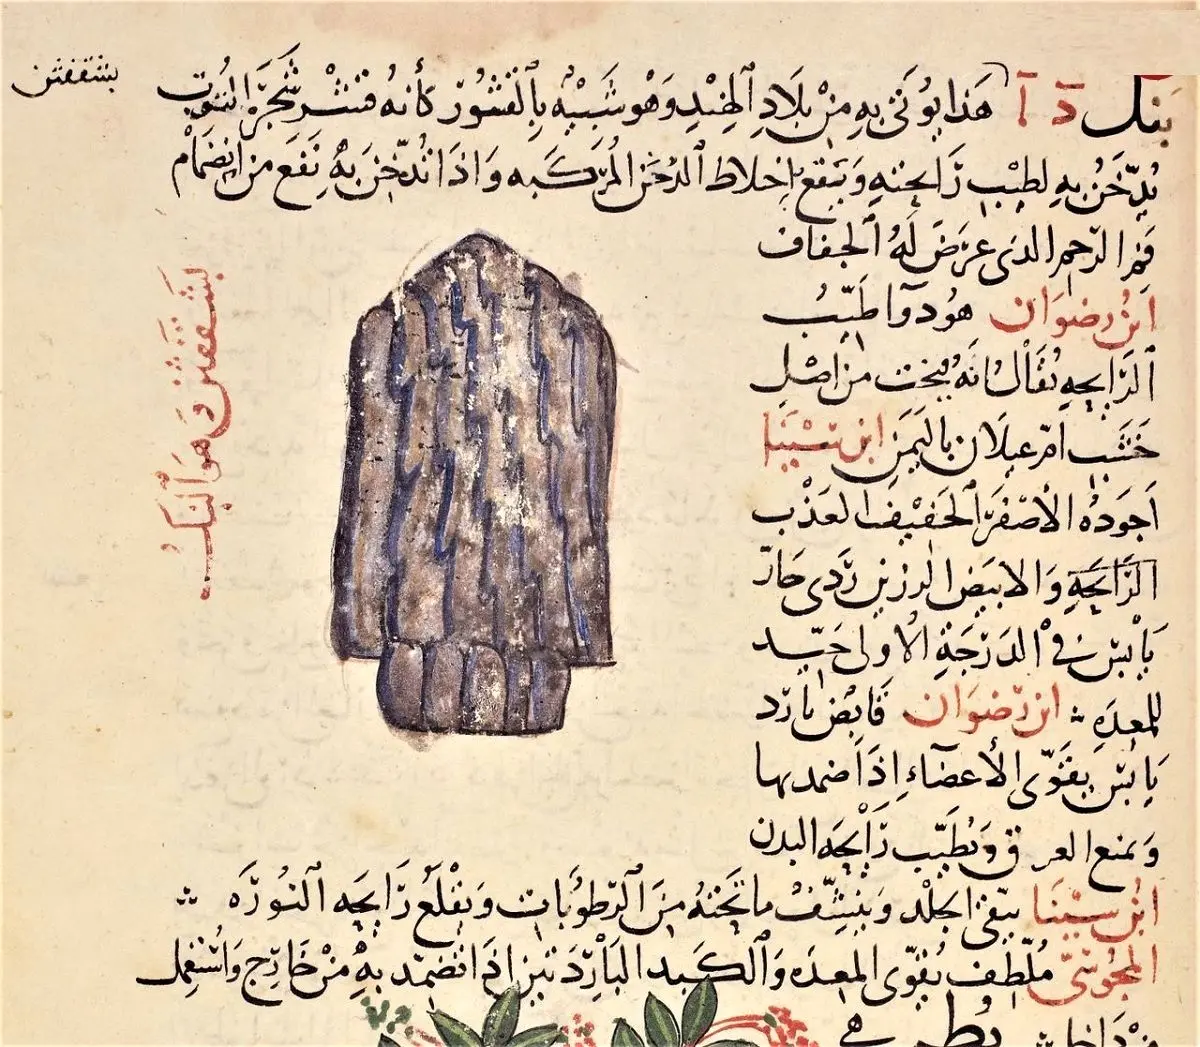 بشقفثن
بنك د آ هذا يوتى به من بلاد الهند وهو شبيه بالقشور كأنه قشر شجرة التوت
يدخن به لطيب رايحته وينفع باخلاط الدخن المركبه واذا تدخن به نفع من انضمام
فم الرحم الذى عرض له الجفاف
ابن رضوان هو دوا طيب
الرايحه يقال انه ينحت من اصل
خشب ام غيلان باليمن ابن سينا
اجوده الاصفر الخفيف العذب
الرايحة والابيض الرزين ردى حار
يابس فى الدرجة الاولى جيد
للمعده ابن رضوان قابض بارد
يابس يقوى الأعضاء اذا ضمد بها
ويمنع العرق ويطيب رايحه البدن
ابن سينا ينقى الجلد وينشف ما تحته من الرطوبات ويقلع رايحه النوره
المجوسى ملطف يقوى المعده والكبد الباردتين اذا تضمد به من خارج واستعمل
من داخل
بشقفثن د هو البنك